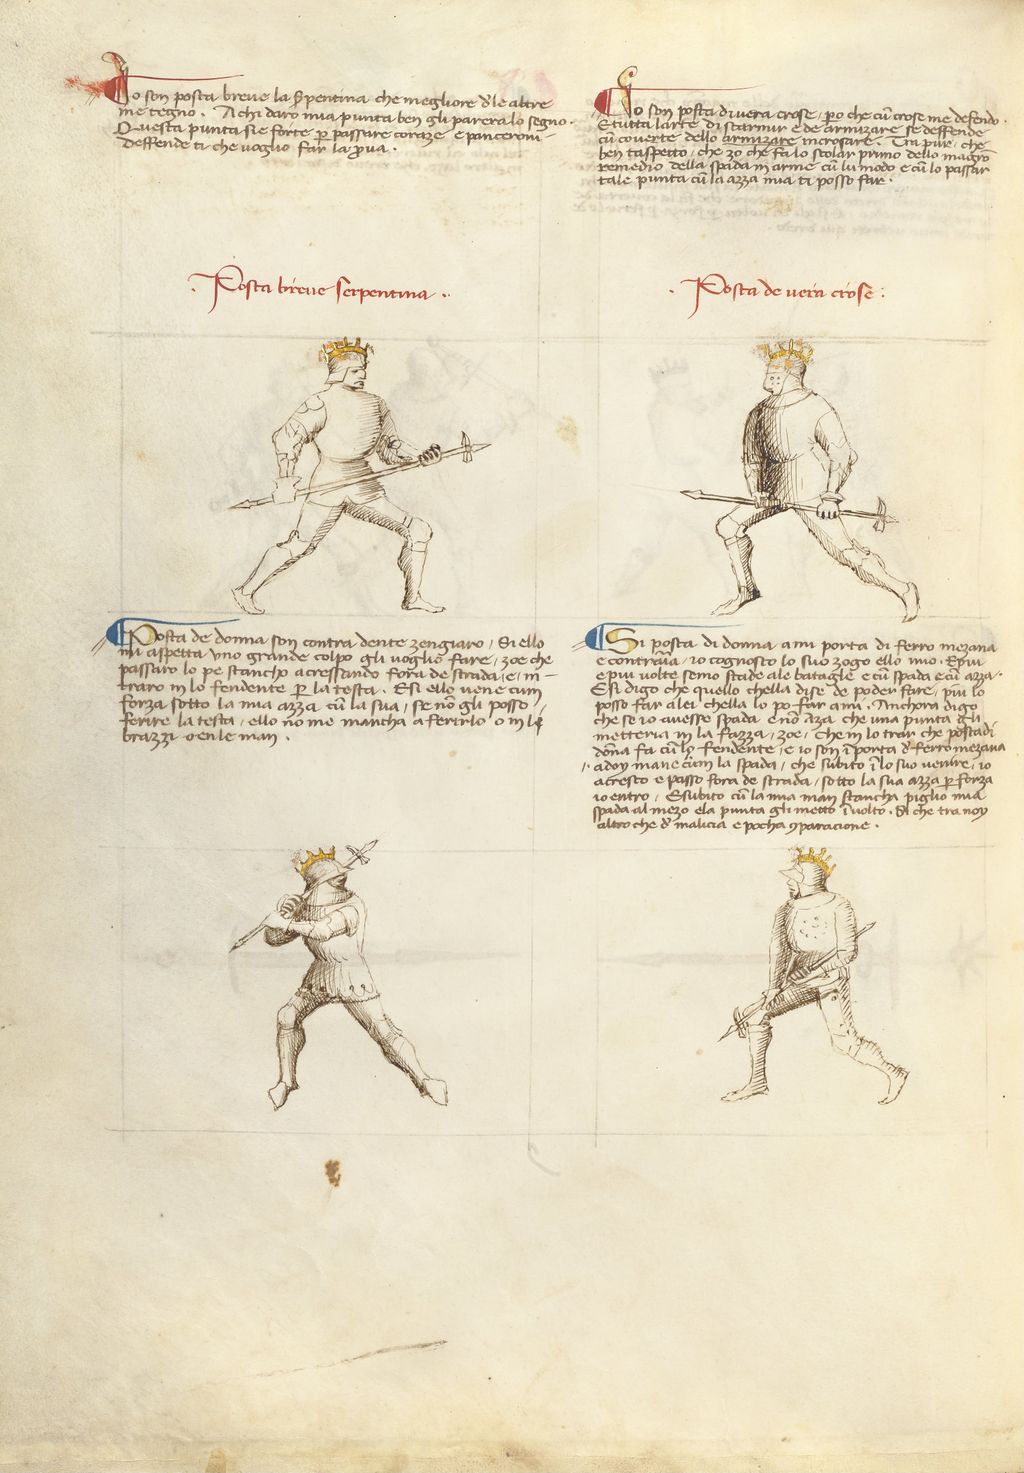 Io son posta breve la serpentina che megliore dele altre
me tegno. A chi daro mia punta ben gli parera lo segno.
Questa punta si e forte per passare coraze e panceroni
deffende ti che voglio far la prova.
Posta breve serpentina
Io son posta di vera crose, però che cum crose me defendo.
E tutta larte di scarmir e de armizare se deffende
cum coverte dello armizare incrosare. Tra pur, che
ben taspetto, che zo che fa lo scolar primo dello magro
remedio della spada in arme cum lu modo e cum lo passar
tale punta cum la azza mia ti posso far.
Posta de vera crose
Posta de donna son contra dente zengiaro, Si ello
mi aspetta uno grande colpo gli voglio fare, zoe che
passaro lo pe stancho acressando fora de strada, e in-
traro in lo fendente per la testa. E si ello vene cum
forza sotto la mia azza cum la sua, se non gli posso
ferire la testa, ello no me mancha a ferirlo o in le
brazzi o en le man.
Si posta di donna a mi porta di ferro mezana
e contraria, io cognosco lo suo zogo ello mio. E piu
e piu volte semo stade ale bataglie e cum spada e cum azza.
E si digo che quello chella dise de poder fare, piu lo
posso far a lei chella lo po far a mi. Anchora digo
che se io avesse spada e non azza che una punta gli
metteria in la fazza, zoe, che in lo trar che posta di
donna fa cum lo fendente, e io son in porta di ferro mezana
a doy mane cum la spada, che subito in lo suo venire, io
acresco e passo fora de strada, sotto la sua azza per forza
io entro, E subito cum la mia man stancha piglio mia
spada al mezo e la punta gli metto in volto. Si che tra noy
altro che di malicia e pocha comparacione.